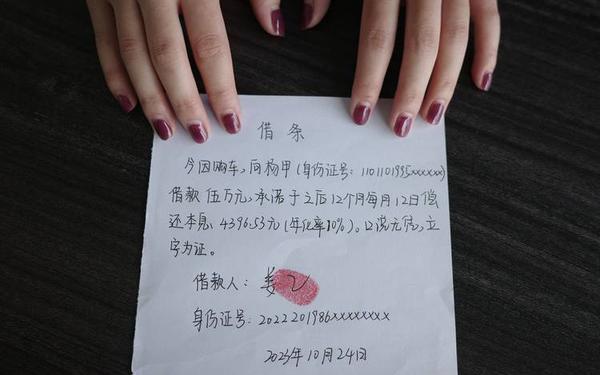 借条
今因购车,向杨甲(身份证号:1101101995xxxxxx)
借款伍万元,承诺于之后12个月每月12日偿
还本息,4396.53元(年化率10%)。口说无凭,立
字为证。
借款人:姜乙
身份证号:2022201986xxxxxxxx
2023年10月24日